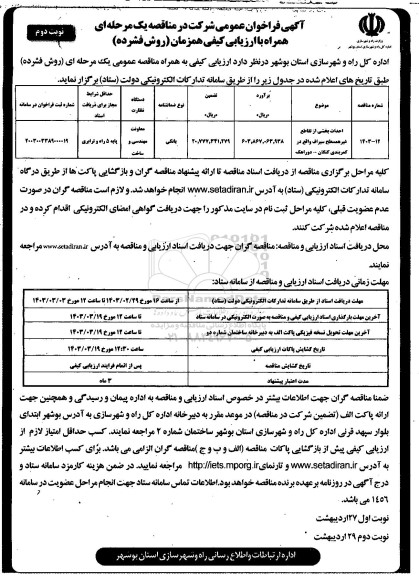 آگهی فراخوان عمومی شرکت در مناقصه یک مرحله ای
همراه با ارزیابی کیفی همزمان (روش فشرده)
نوبت دوم
اداره کل راه و شهرسازی استان بوشهر درنظر دارد ارزیابی کیفی به همراه مناقصه عمومی یک مرحله ای (روش فشرده)
طبق تاریخ های اعلام شده در جدول زیر را از طریق سامانه تدارکات الکترونیکی دولت (ستاد) برگزار نماید.
شماره مناقصه | موضوع | برآورد «ریال» | تضمین «ریال» | نوع ضمانتنامه | دستگاه نظارت | حداقل شرایط مجاز برای دریافت اسناد | شماره ثبت فراخوان در سامانه
۱۴۰۳-۱۴ | احداث بخشی از تقاطع غیرهمسطح سیراف واقع در کمربندی کنگان - دوراهک | ۶۰۳,۸۶۷,۰۶۳,۹۳۸ | ۲۰,۷۷۲,۳۴۱,۲۷۹ | بانکی | معاونت مهندسی و ساخت | پایه ۵ راه و ترابری | ۲۰۰۳۰۰۳۳۸۹۰۰۰۰۱۹
کلیه مراحل برگزاری مناقصه از دریافت اسناد مناقصه تا ارائه پیشنهاد مناقصه گران و بازگشایی پاکت ها از طریق درگاه
سامانه تدارکات الکترونیکی (ستاد) به آدرس www.setadiran.ir انجام خواهد شد. و لازم است مناقصه گران در صورت
عدم عضویت قبلی، کلیه مراحل ثبت نام در سایت مذکور را جهت دریافت گواهی امضای الکترونیکی اقدام کرده و در
مناقصه اعلام شده شرکت کنند.
محل دریافت اسناد ارزیابی و مناقصه: مناقصه گران جهت دریافت اسناد ارزیابی و مناقصه به آدرس www.setadiran.ir مراجعه
نمایند.
مهلت زمانی دریافت اسناد ارزیابی و مناقصه از سامانه ستاد:
مهلت دریافت اسناد از طریق سامانه تدارکات الکترونیکی دولت (ستاد) | از ساعت ۱۶ مورخ ۱۴۰۳/۰۲/۲۹ تا ساعت ۱۲ مورخ ۱۴۰۳/۰۳/۰۳
آخرین مهلت بارگذاری اسناد ارزیابی کیفی و مناقصه به صورت الکترونیکی در سامانه ستاد | تا ساعت ۱۲ مورخ ۱۴۰۳/۰۳/۱۹
آخرین مهلت تحویل نسخه فیزیکی پاکت الف به دبیرخانه ساختمان شماره دو | تا ساعت ۱۲ مورخ ۱۴۰۳/۰۳/۱۹
تاریخ گشایش پاکات ارزیابی کیفی | ساعت ۱۲:۳۰ مورخ ۱۴۰۳/۰۳/۱۹
تاریخ گشایش مناقصه | پس از اتمام فرایند ارزیابی کیفی
مدت اعتبار پیشنهاد | ۳ ماه
ضمنا مناقصه گران جهت اطلاعات بیشتر در خصوص اسناد ارزیابی و مناقصه به اداره پیمان و رسیدگی و همچنین جهت
ارائه پاکت الف (تضمین شرکت در مناقصه) در موعد مقرر به دبیرخانه اداره کل راه و شهرسازی به آدرس بوشهر ابتدای
بلوار سپهد قرنی اداره کل راه و شهرسازی استان بوشهر ساختمان شماره ۲ مراجعه نمایند. کسب حداقل امتیاز لازم از
ارزیابی کیفی پیش از بازگشایی پاکات مناقصه (الف و ب و ج) مناقصه گران الزامی می باشد. برای کسب اطلاعات بیشتر
به آدرس www.setadiran.ir و تارنمای http://iets.mporg.ir مراجعه نمایید. در ضمن هزینه کارمزد سامانه ستاد و
درج آگهی در روزنامه بر عهده برنده مناقصه خواهد بود. اطلاعات تماس سامانه ستاد جهت انجام مراحل عضویت در سامانه
۱۴۵۶ می باشد.
نوبت اول ۲۷ اردیبهشت
نوبت دوم ۲۹ اردیبهشت
اداره ارتباطات و اطلاع رسانی راه و شهرسازی استان بوشهر